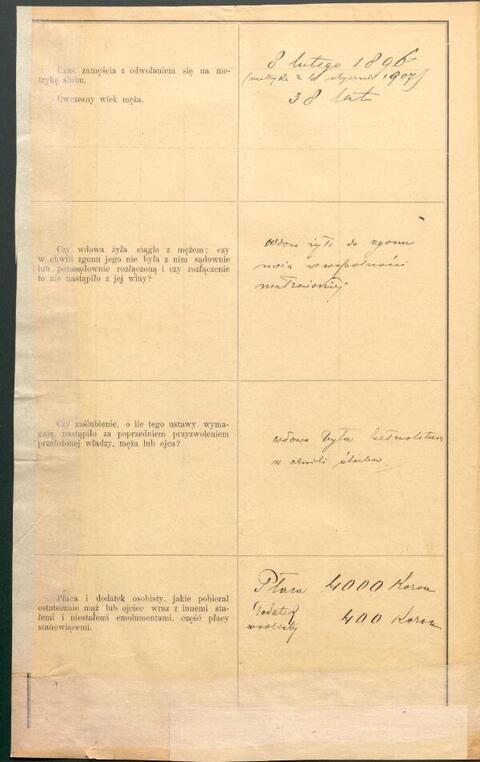 Czas zamęścia z odwołaniem się na me-
trykę ślubu.
Owczesny wiek męża.
8 lutego 1896
(metryka z stycznia 1907)
38 lat
Czy wdowa żyła ciągle z mężem; czy
w chwili zgonu jego nie była z nim sądownie
lub pozasądownie rozłączoną i czy rozłączenie
to nie nastąpiło z jej winy?
wdowa żyła do zgonu
męża w wspólności
małżeńskiej
Czy zaślubienie, o ile tego ustawy wyma-
gają, nastąpiło za poprzedniem przyzwoleniem
przełożonej władzy, męża lub ojca?
wdowa była
w chwili ślubu.
Płaca i dodatek osobisty, jakie pobierał
ostatecznie mąż lub ojciec wraz z innemi sta-
łemi i niestałemi emolumentami, część płacy
stanowiącemi.
Płaca 4000 Koron
Dodatek
osobisty 400 Koron